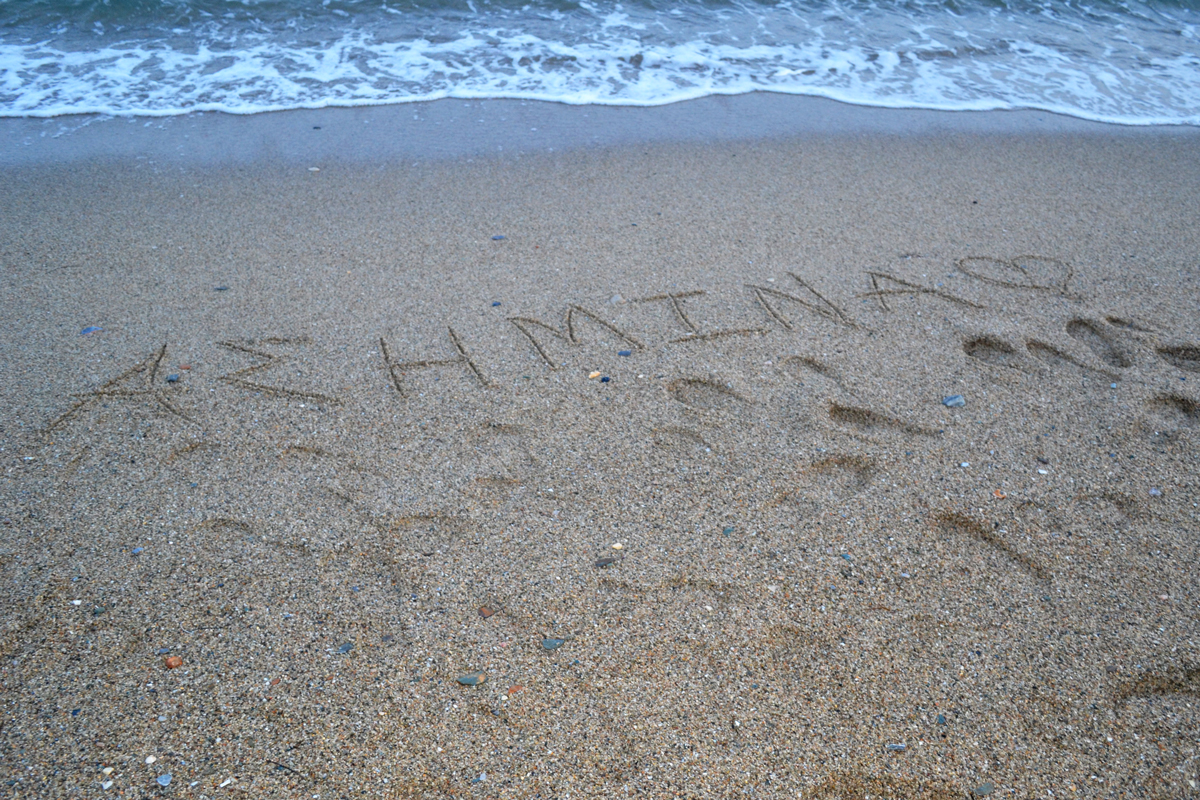 ΑΣΗΜΙΝΑ♡